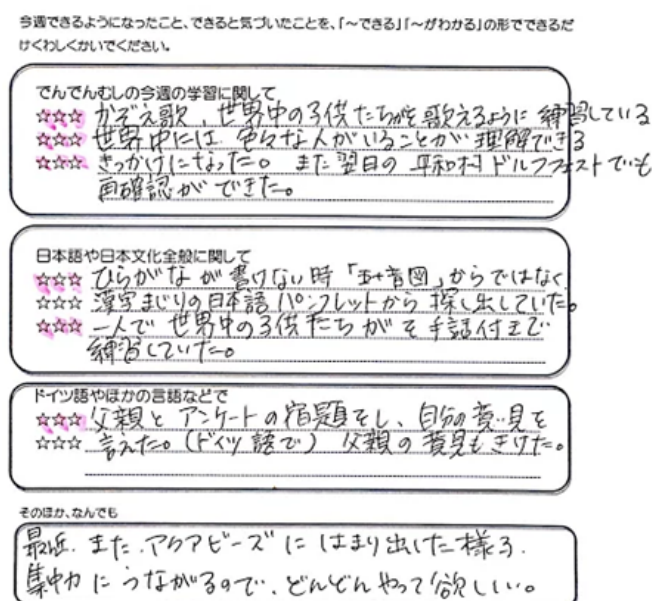 今週できるようになったこと、できると気づいたことを、「〜できる」「〜がわかる」の形でできるだ
けくわしくかいてください。
でんでんむしの今週の学習に関して
☆☆☆ かぞえ歌、世界中の子供たちがを歌えるように練習している
☆☆☆ 世界中には色々な人がいることが理解できる
☆☆☆ きっかけになった。また翌日の平和村ドルフフェストでも
再確認ができた。
日本語や日本文化全般に関して
☆☆☆ ひらがなが書けない時「五十音図」からではなく
☆☆☆ 漢字まじりの日本語パンフレットから探し出していた。
☆☆☆ 一人で世界中の子供たちがを手話付きで
練習していた。
ドイツ語やほかの言語などで
☆☆☆ 父親とアンケートの宿題をし、自分の意見を
☆☆☆ 言えた。(ドイツ語で) 父親の意見もきけた。
そのほか、なんでも
最近、また、アクアビーズにはまり出した様子。
集中力につながるので、どんどんやって欲しい。